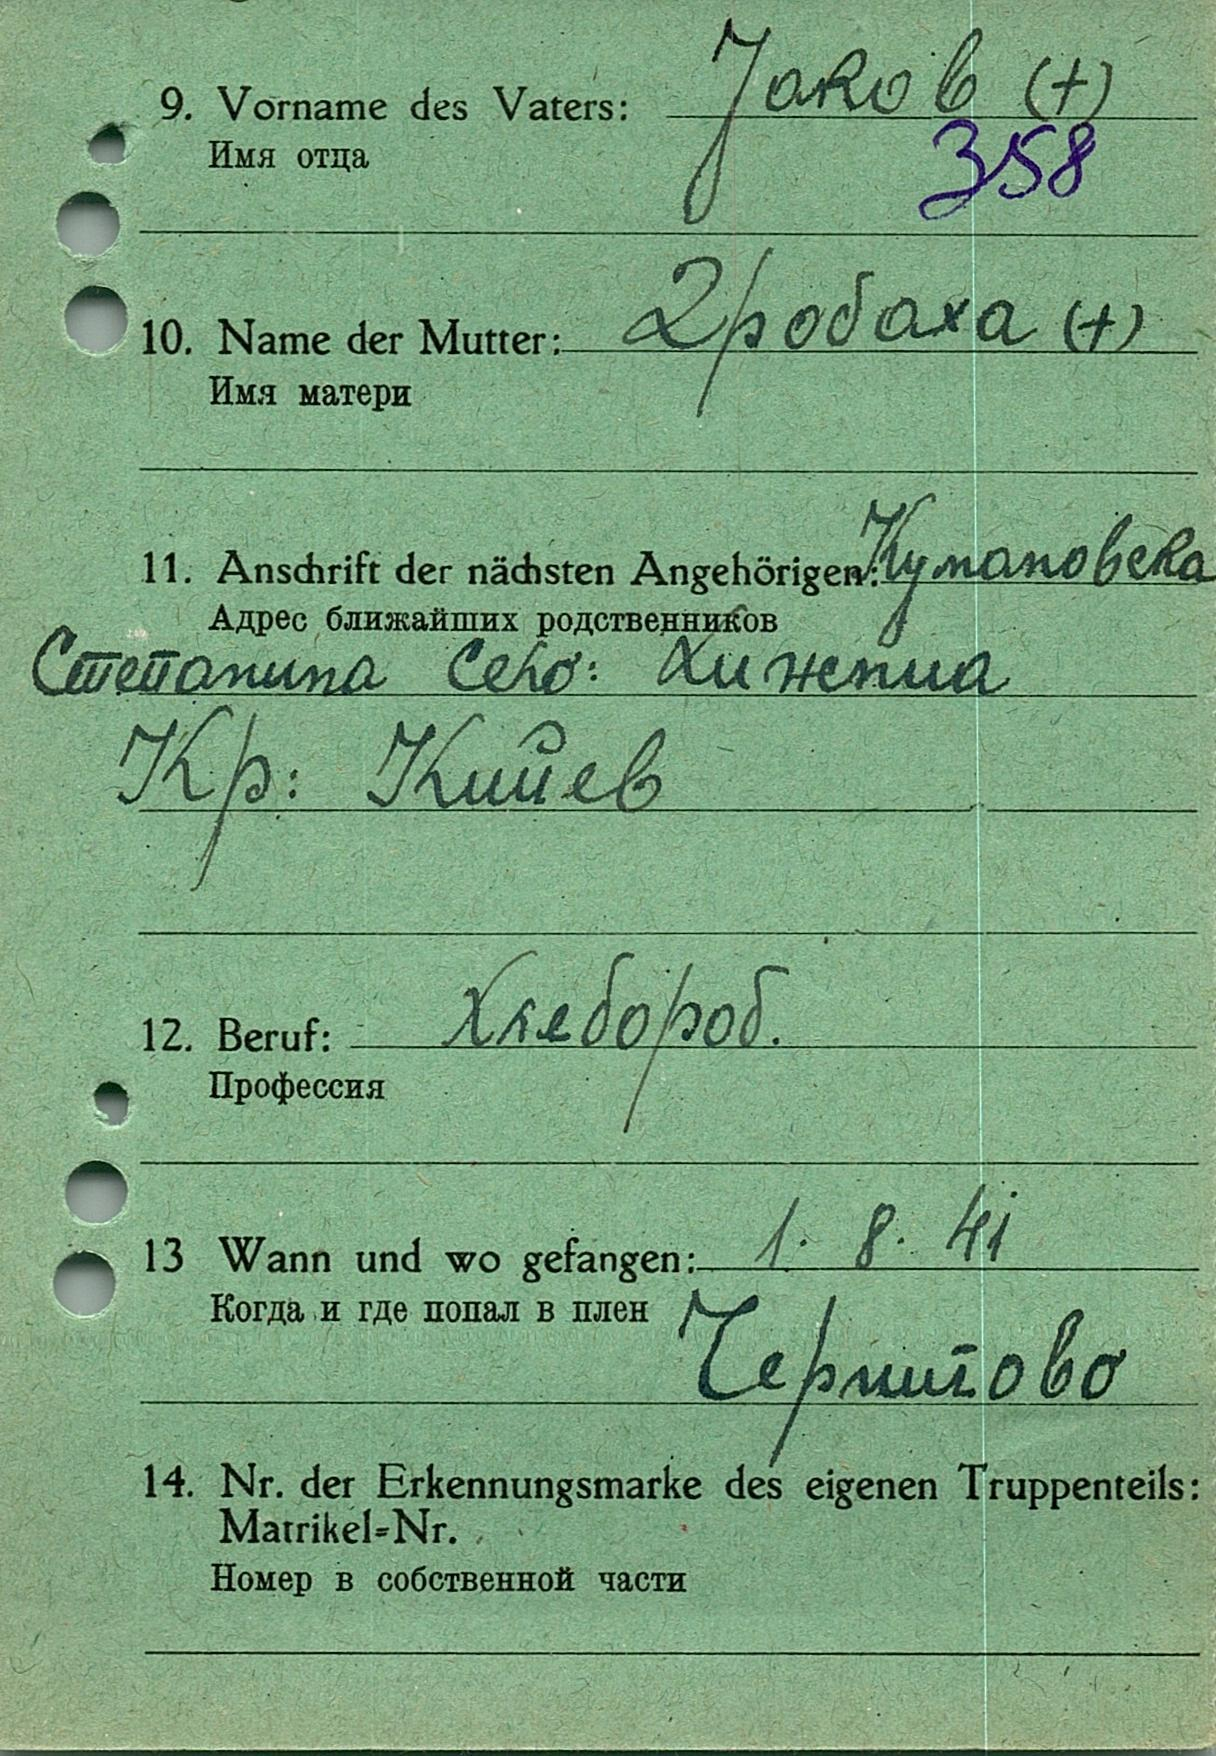 9. Vorname des Vaters: Јаков (+)
Имя отца
358
10. Name der Mutter: Дробаха (+)
Имя матери
11. Anschrift der nächsten Angehörigen: Кумановска
Адрес ближайших родственников
Степанина Село:
Кр: Кийев
12. Beruf: Хлебороб.
Профессия
13 Wann und wo gefangen: 1. 8. 41
Когда и где попал в плен
Чернигово
14. Nr. der Erkennungsmarke des eigenen Truppenteils:
Matrikel=Nr.
Номер в собственной части